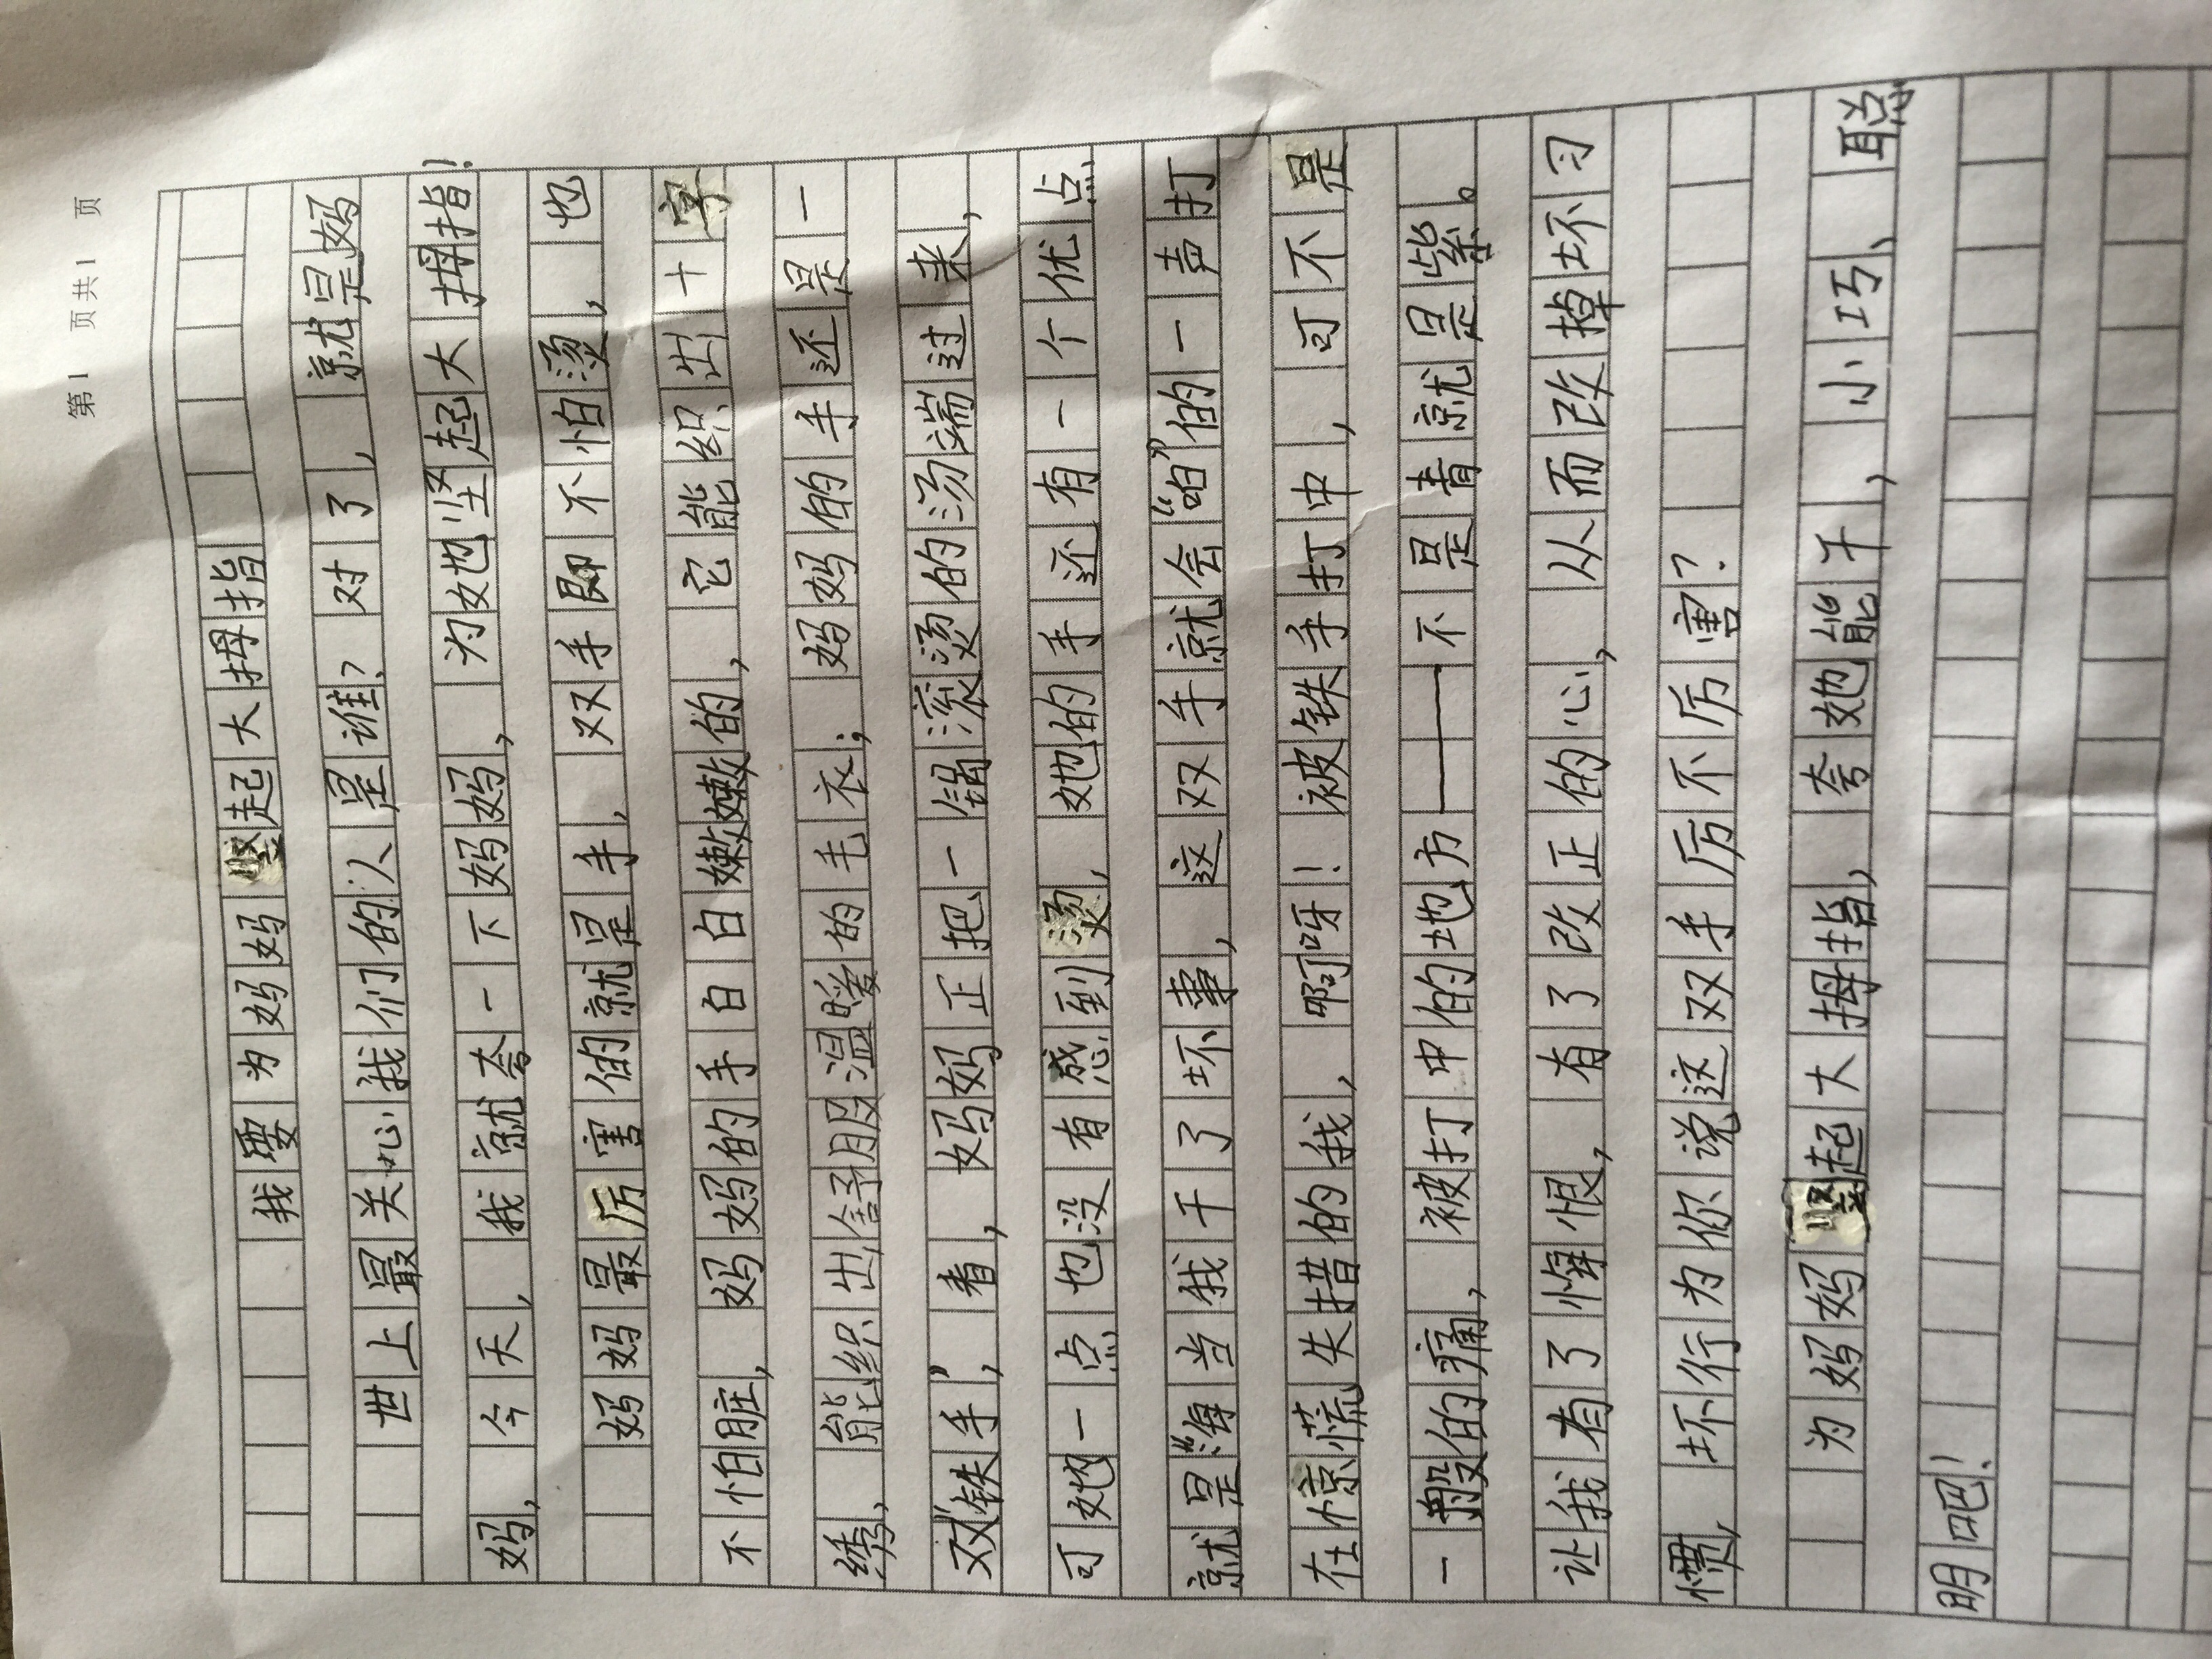 第1 页共1 页
我要为妈妈竖起大拇指
世上最关心我们的人是谁？对了，就是妈
妈，今天，我就夸一下妈妈，为她坚起大拇指！
妈妈最厉害的就是手，双手即不怕烫，也
不怕脏，妈妈的手白白嫩嫩的，它能织出十字
绣，能织出舒服温暖的毛衣；妈妈的手还是一
双“铁手”，看，妈妈正把一锅滚烫的汤端过来，
可她一点也没有感到烫，她的手还有一个优点
就是“每当我干了坏事，这双手就会“啪”的一声打
在惊慌失措的我，啊呀！被铁手打中，可不是
一般的痛，被打中的地方——不是青就是紫。
让我有了悔恨，有了改正的心，从而改掉坏习
惯，坏行为你说这双手厉不厉害？
为妈妈竖起大拇指，夸她能干，小巧、聪
明吧！